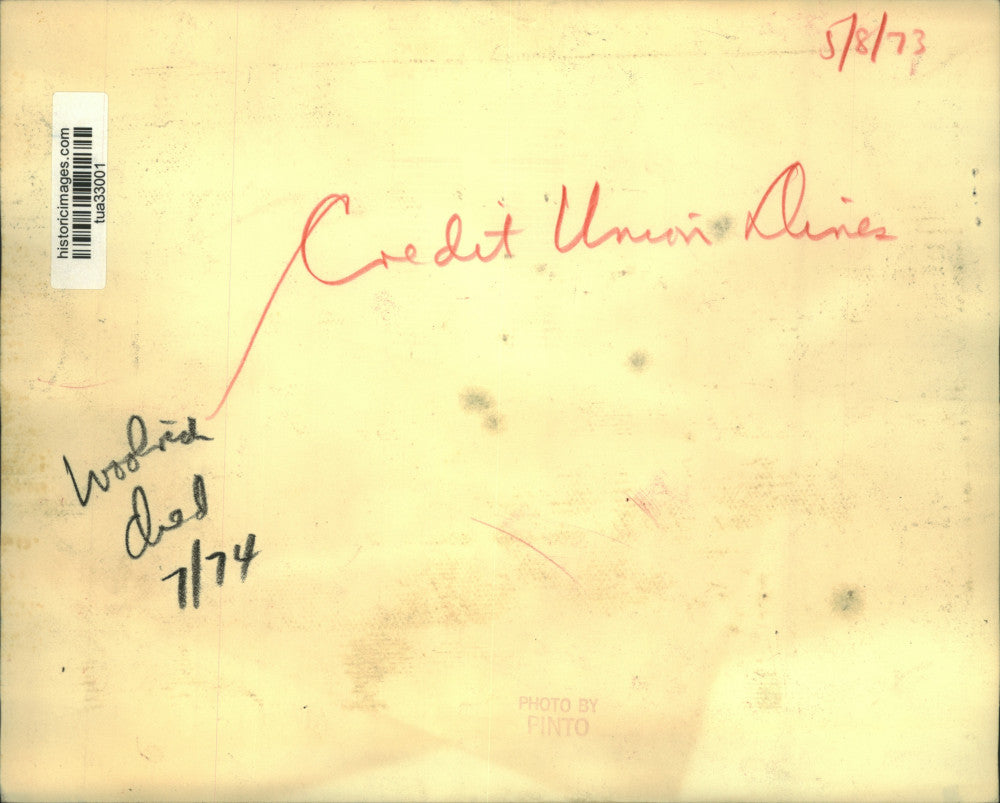 5/8/73
historicimages.com
tua33001
Credit Union Dines
Woolrich
died
7/74
PHOTO BY
PINTO